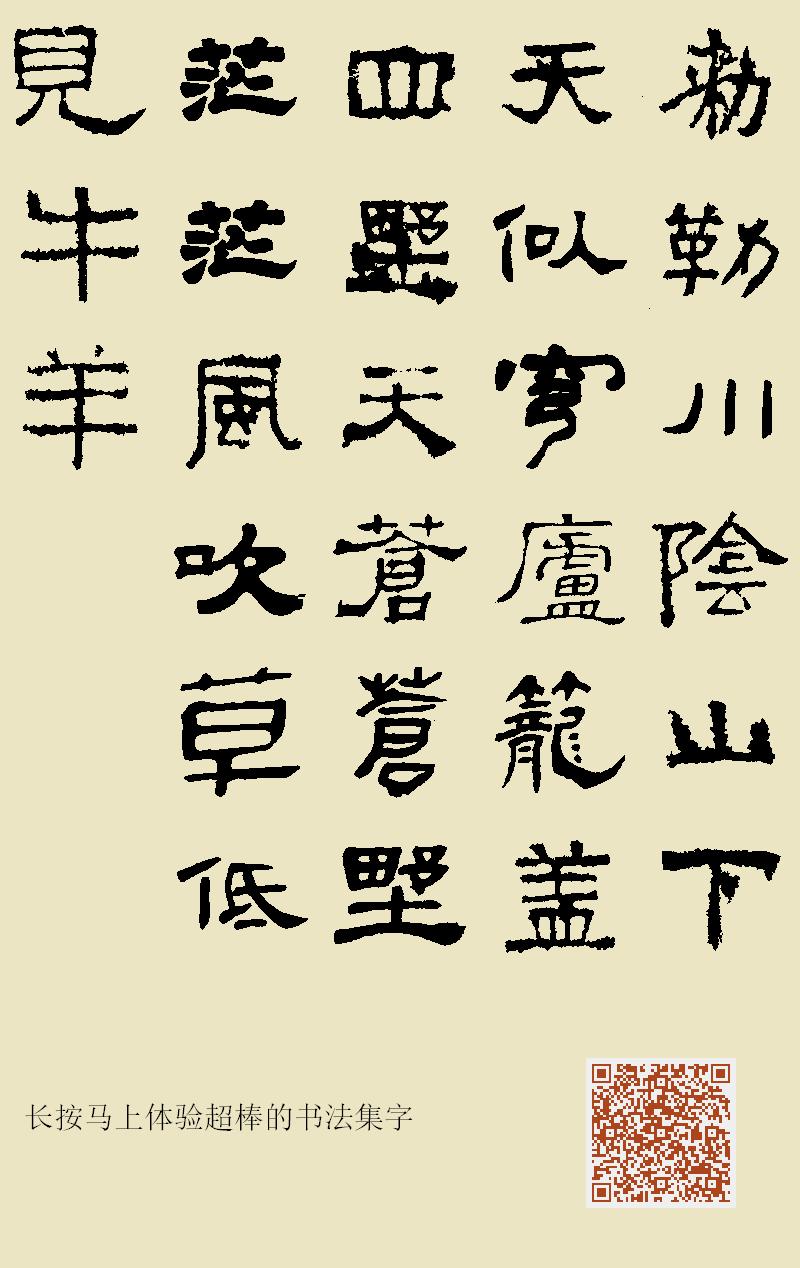 勑勒川陰山下
天似穹廬籠盖
四野天蒼蒼野
茫茫風吹草低
見牛羊
长按马上体验超棒的书法集字